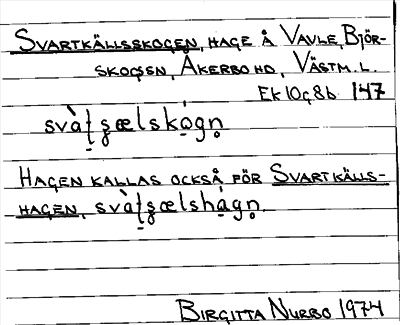 SVARTKÄLLSSKOGEN, HAGE Å VAVLE, BJÖR-
SKOGSN, ÅKERBO HD, VÄSTM. L.
EK 10G8b 147
svàʈʂælskógn̥
HAGEN KALLAS OCKSÅ FÖR SVARTKÄLLS-
HAGEN, svàʈʂælshágn̥
BIRGITTA NURBO 1974